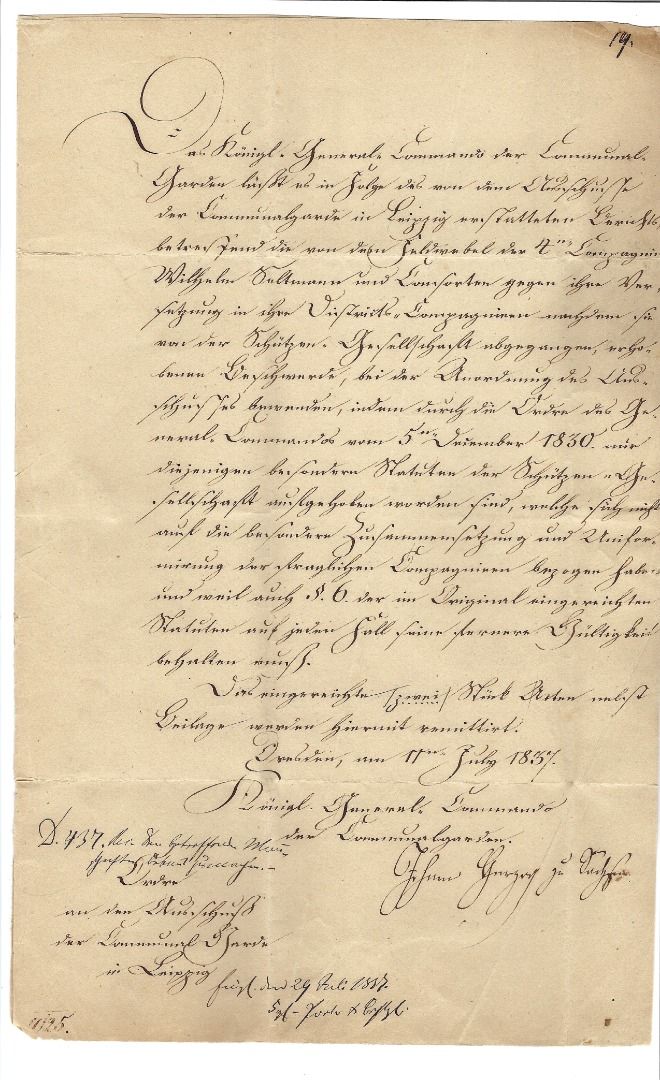 19.
Das Königl. General-Commando der Communal-
Garden läßt es in Folge des von dem Ausschusse
der Communalgarde in Leipzig erstatteten Berichts
betreffend die von dem Feldwebel der 4ten Compagnie
Wilhelm Seltmann und Consorten gegen ihre Ver-
setzung in ihre Districts-Compagnieen nachdem sie
von der Schützen-Gesellschaft abgegangen, erho-
benen Beschwerde, bei der Anordnung des Aus-
schusses bewenden, indem durch die Ordre des Ge-
neral-Commandos vom 5ten December 1830. nur
diejenigen besondern Statuten der Schützen-Ge-
sellschaft aufgehoben worden sind, welche sich nicht
auf die besondere Zusammensetzung und Unifor-
mirung der fraglichen Compagnieen bezogen haben
und weil auch §. 6. der im Original eingereichten
Statuten auf jeden Fall seine fernere Gültigkeit
behalten muß.
Das eingereichte (zwei) Stück Acten nebst
Beilage werden hiermit remittirt.
Dresden, am 11ten July 1837.
Königl. General-Commando
der Communalgarden.
Johann Herzog zu Sachsen
D. 437. den betreffenden
Ordre
an den Ausschuß
der Communal Garde
in Leipzig
den 29 Juli 1837.